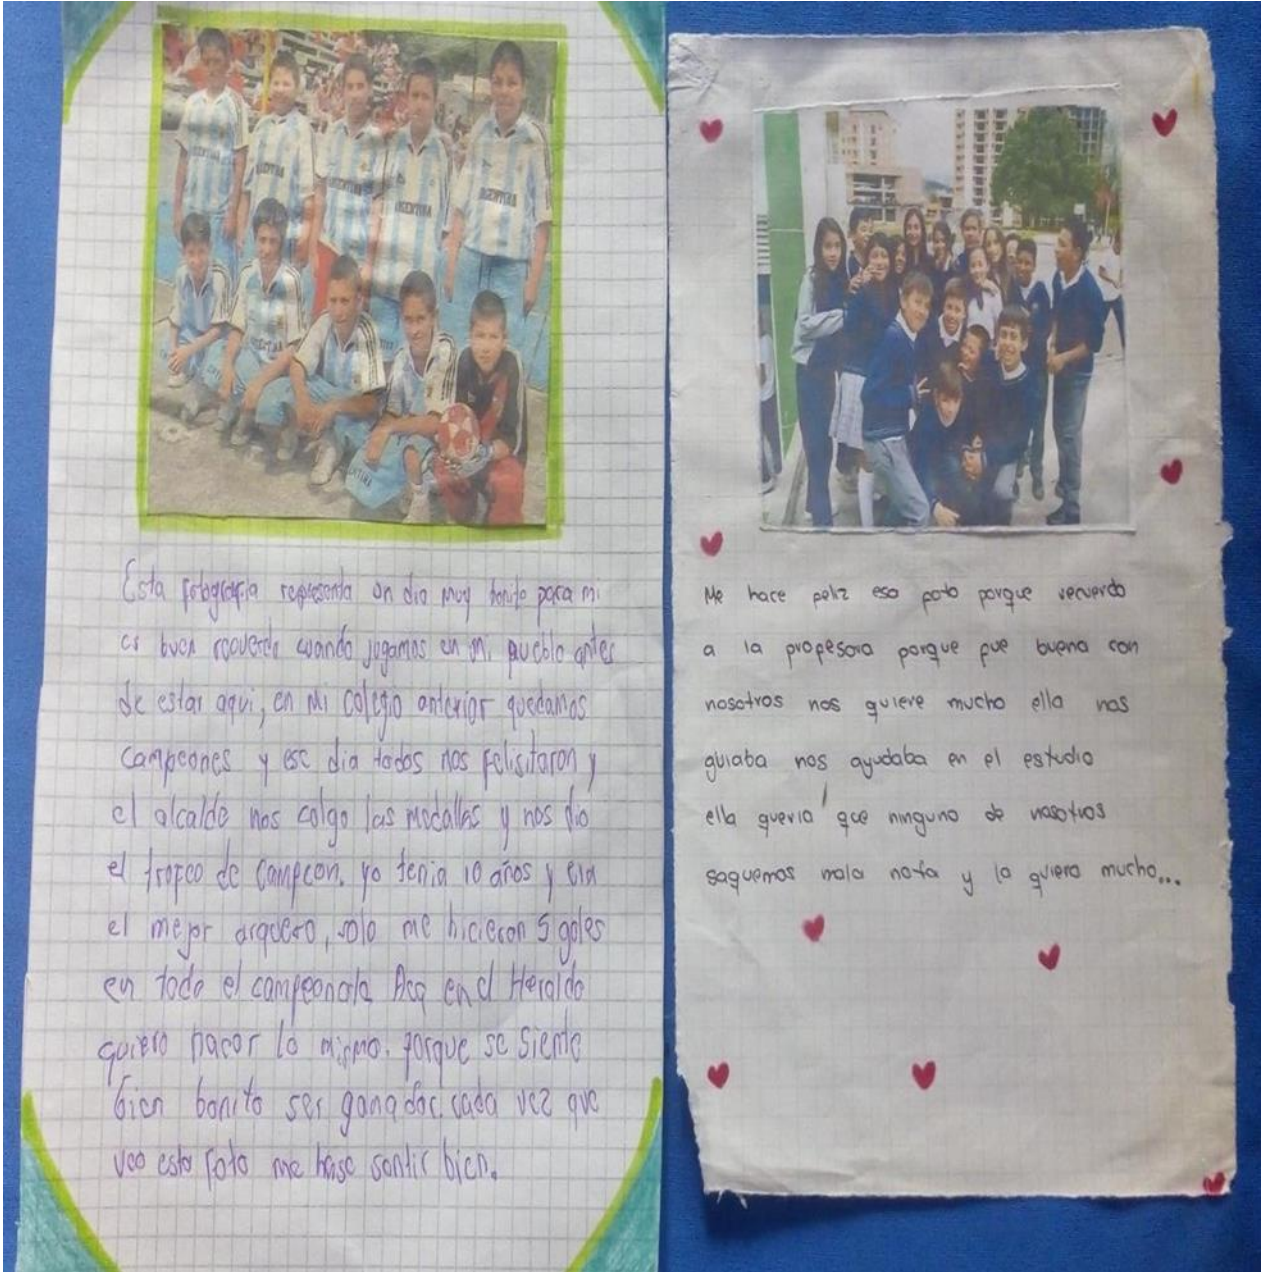 ARGENTINA
ARGENTINA
ARGENTINA
Esta fotografia representa un dia muy bonito para mi
es buen recuerdo cuando jugamos en mi pueblo antes
de estar aqui, en mi colegio anterior quedamos
campeones y ese dia todos nos felisitaron y
el alcalde nos colgo las medallas y nos dio
el trofeo de campeon. yo tenia 10 años y era
el mejor arquero, solo me hicieron 5 goles
en todo el campeonato Aca en el Heraldo
quiero hacer lo mismo. porque se siente
bien bonito ser ganador. cada vez que
veo esta foto me hase sentir bien.
Me hace feliz esa foto porque recuerdo
a la profesora porque fue buena con
nosotros nos quiere mucho ella nos
guiaba nos ayudaba en el estudio
ella queria que ninguno de nosotros
saquemos mala nota y la quiero mucho...